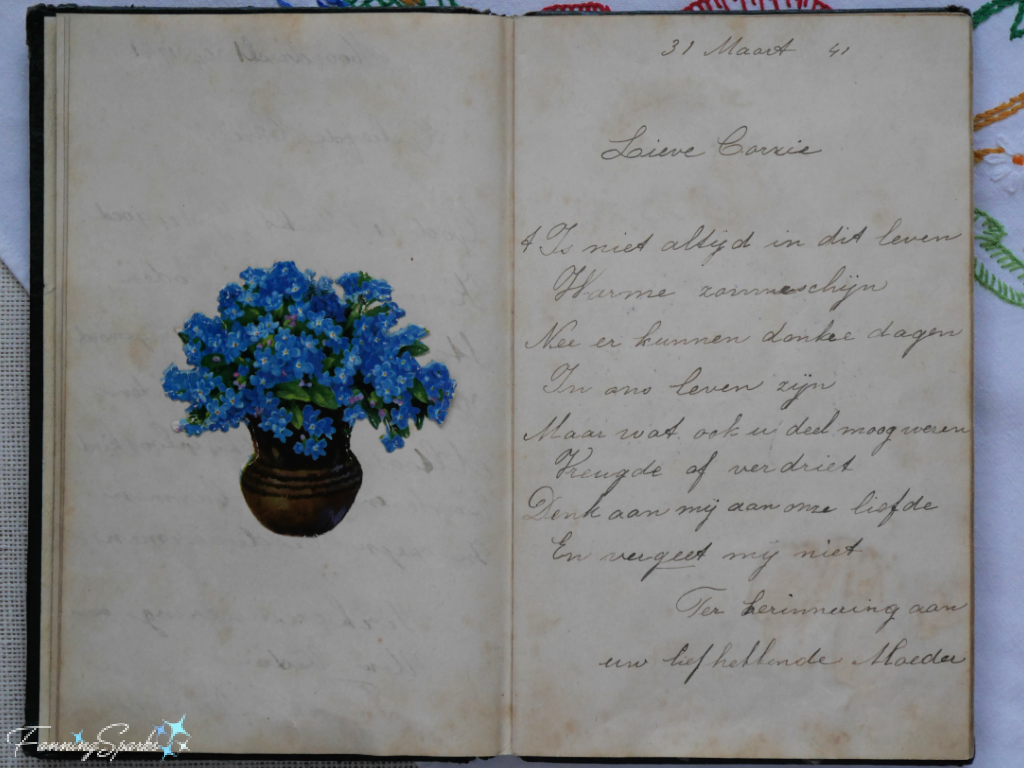 31 Maart 41
Lieve Corrie
't Is niet altijd in dit leven
Warme zonneschijn
Nee er kunnen donkre dagen
In ons leven zijn
Maar wat ook u deel moog wezen
Vreugde of verdriet
Denk aan mij aan onze liefde
En vergeet mij niet
Ter herinnering aan
uw liefhebbende Moeder
FanningSparks